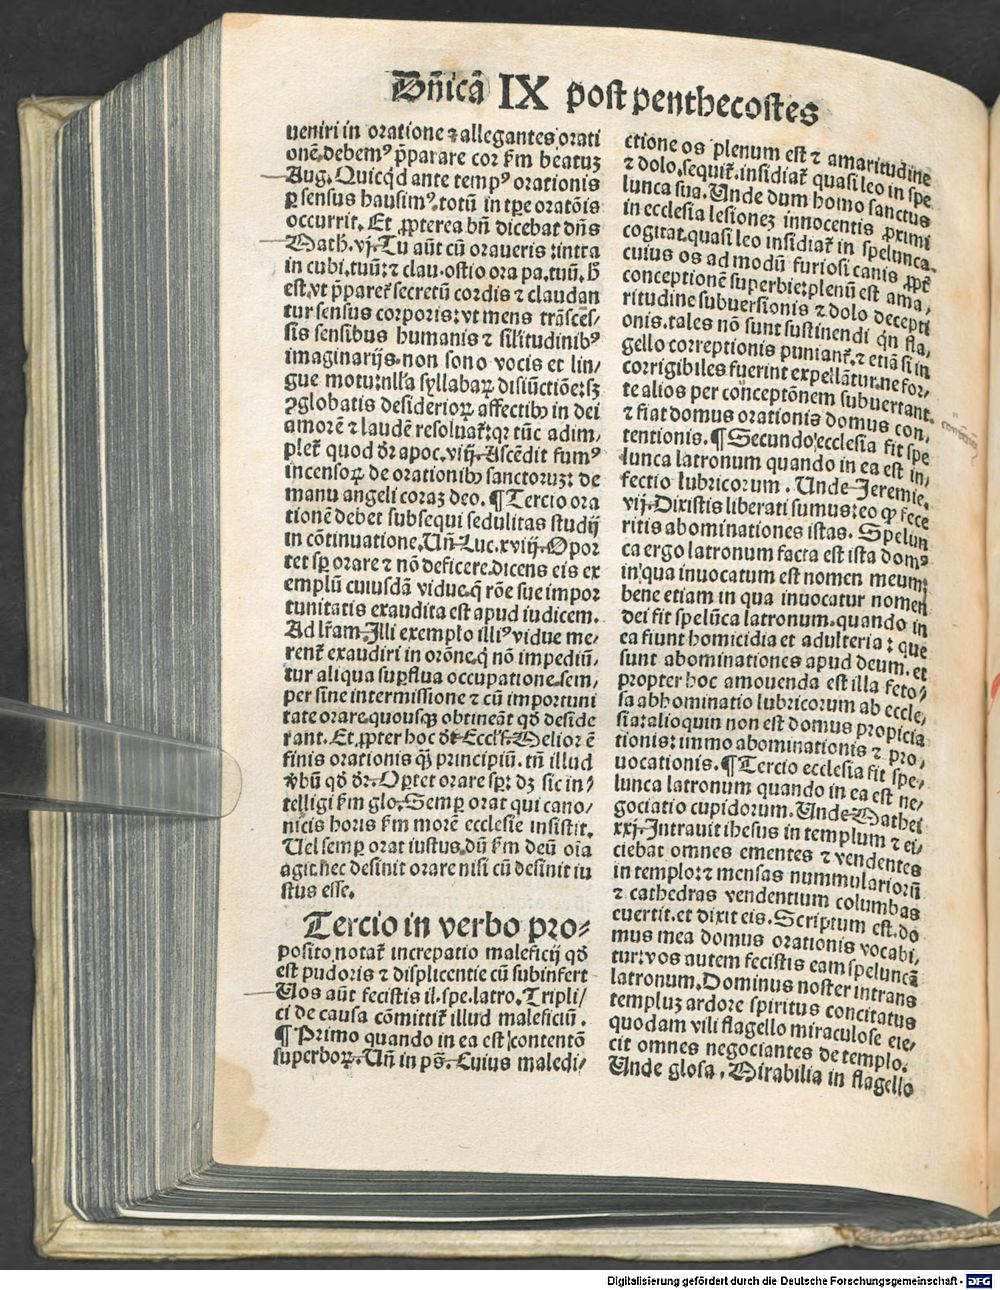 Dñica IX post penthecostes
ueniri in oratione ⁊ allegantes orati
onē debemꝰ p̄parare cor s̄m beatuꝫ
Aug. Quicq̇d ante tempꝰ orationis
ꝑ sensus hausimꝰ, totū in tp̄e oratōis
occurrit. Et ꝓpterea bn̄ dicebat dn̄s
Math. vj. Tu aūt cū oraueris : intra
in cubi. tuū: ⁊ clau. ostio ora pa. tuū. h̄
est, vt p̄pareꝉ secretū cordis ⁊ claudan
tur sensus corporis: vt mens trāsces⸗
sis sensibus humanis ⁊ sil'itudinibꝰ
imaginarijs, non sono vocis et lin⸗
gue motu: nll'a syllabaꝝ disiūctiōe: sꝫ
ꝯglobatis desiderioꝝ affectibꝰ in dei
amorē ⁊ laudē resoluaꝉ: qꝛ tūc adim⸗
pleꝉ quod dr̄ apoc. viij. Ascēdit fumꝰ
incensoꝝ de orationibꝰ sanctoruꝫ: de
manu angeli coraꝫ deo. ¶ Tercio ora
tionē debet subsequi sedulitas studij
in cōtinuatione. Vn̄ Luc. xviij. Opor
tet sꝑ orare ⁊ nō deficere. dicens eis ex
emplū cuiusdā vidue, q̄ rōe sue impor
tunitatis exaudita est apud iudicem.
Ad lr̄am. Illi exemplo illiꝰ vidue me⸗
renꝉ exaudiri in orōne, q̇ nō impediū⸗
tur aliqua suꝑflua occupatione, sem⸗
per sine intermissione ⁊ cū importuni
tate orare, quousqꝫ obtineāt qd̄ deside
rant. Et ꝓpter hoc dr̄ Eccl's. Melior ē
finis orationis q̄ꝫ principiū. tn̄ illud
v̄bū qd̄ dr̄. Oꝑtet orare sꝑ: dꝫ sic in⸗
telligi s̄m glo. Semꝑ orat qui cano⸗
nicis horis s̄m morē ecclesie insistit.
Vel semꝑ orat iustus, dū s̄m deū oīa
agit. nec desinit orare nisi cū desinit iu
stus esse.
Tercio in verbo pro⸗
posito notaꝉ increpatio maleficij qd̄
est pudoris ⁊ displicentie cū subinfert
Vos aūt fecistis il. spe. latro. Tripli⸗
ci de causa cōmittiꝉ illud maleficiū.
¶ Primo quando in ea est contentō
superboꝝ. Vn̄ in ps̄. Cuius maledi⸗
ctione os plenum est ⁊ amaritudine
⁊ dolo, sequiꝉ. insidiaꝉ quasi leo in spe
lunca sua. Unde dum homo sanctus
in ecclesia lesionez innocentis ꝓximi
cogitat, quasi leo insidiaꝉ in spelunca.
cuius os ad modū furiosi canis ꝓpꝉ
conceptionē superbie: plenū est ama⸗
ritudine subuersionis ⁊ dolo decepti
onis. tales nō sunt sustinendi qn̄ fla⸗
gello correptionis puniant̄. ⁊ etiā si in
corrigibiles fuerint expellātur. ne for⸗
te alios per conceptōnem subuertant.
⁊ fiat domus orationis domus con⸗
tentionis. ¶ Secundo ecclesia fit spe
lunca latronum quando in ea est in⸗
fectio lubricorum. Unde Jeremie.
vij. Dixistis liberati sumus: eo qꝙ fece
ritis abominationes istas. Spelun
ca ergo latronum facta est ista domꝰ
in qua inuocatum est nomen meum:
bene etiam in qua inuocatur nomen
dei fit spelūca latronum. quando in
ea fiunt homicidia et adulteria: que
sunt abominationes apud deum. et
propter hoc amouenda est illa feto⸗
sa abhominatio lubricorum ab eccle⸗
sia: alioquin non est domus propicia
tionis: immo abominationis ⁊ pro⸗
uocationis. ¶ Tercio ecclesia fit spe⸗
lunca latronum quando in ea est ne⸗
gociatio cupidorum. Unde Mathei
xxj. Intrauit ihesus in templum ⁊ ei⸗
ciebat omnes ementes ⁊ vendentes
in templo: ⁊ mensas nummulariorū
⁊ cathedras vendentium columbas
euertit. et dixit eis. Scriptum est. do
mus mea domus orationis vocabi⸗
tur: vos autem fecistis eam speluncā
latronum. Dominus noster intrans
templuꝫ ardore spiritus concitatus
quodam vili flagello miraculose eie⸗
cit omnes negociantes de templo.
Unde glosa. Mirabilia in flagello
Digitalisierung gefördert durch die Deutsche Forschungsgemeinschaft - DFG